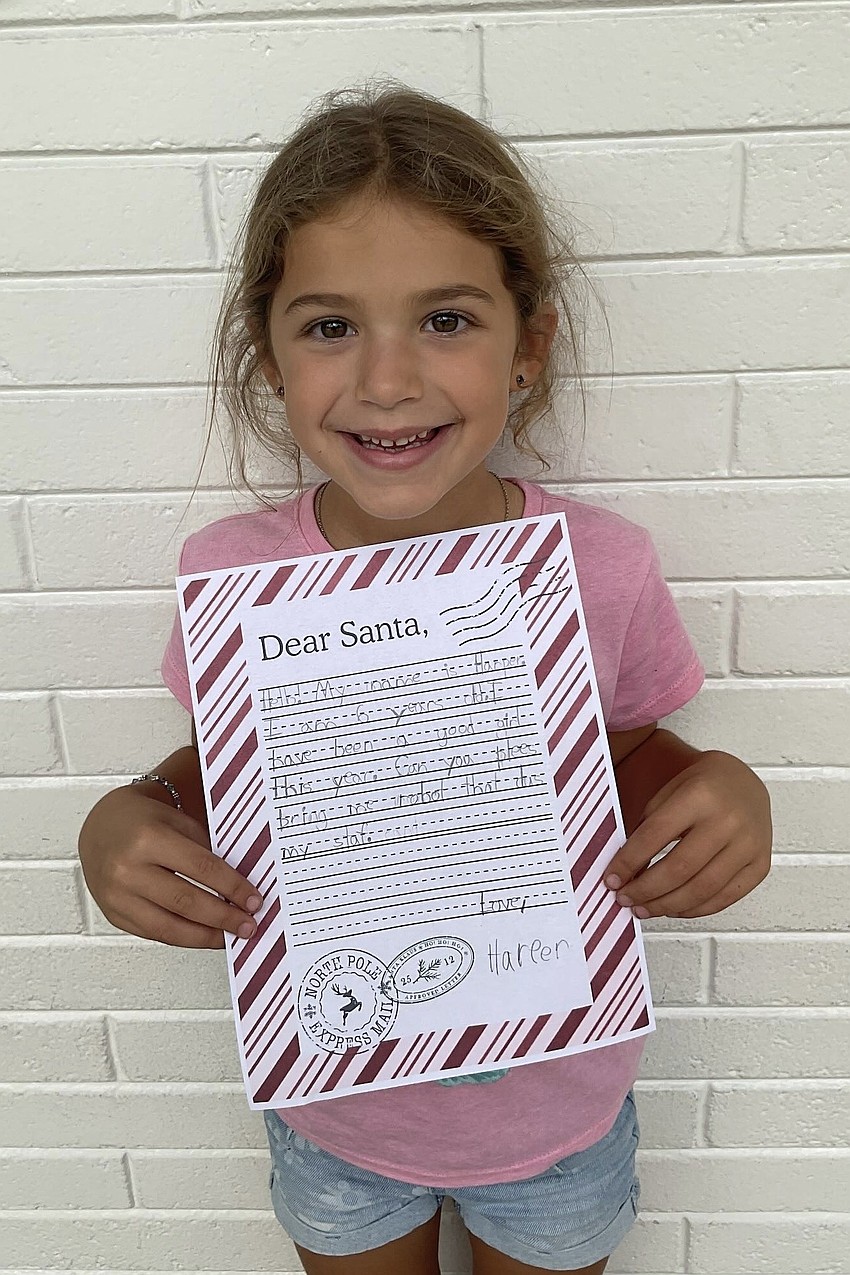 Dear Santa,
Hello! My name is Harper.
I am 6 years old. I
have been a good girl
this year. Can you plees
bring me that dus
my staf.
Love,
Harper
NORTH POLE
EXPRESS MAIL
SANTA KLAUS HO! HO! HO!
25 12
APPROVED LETTER